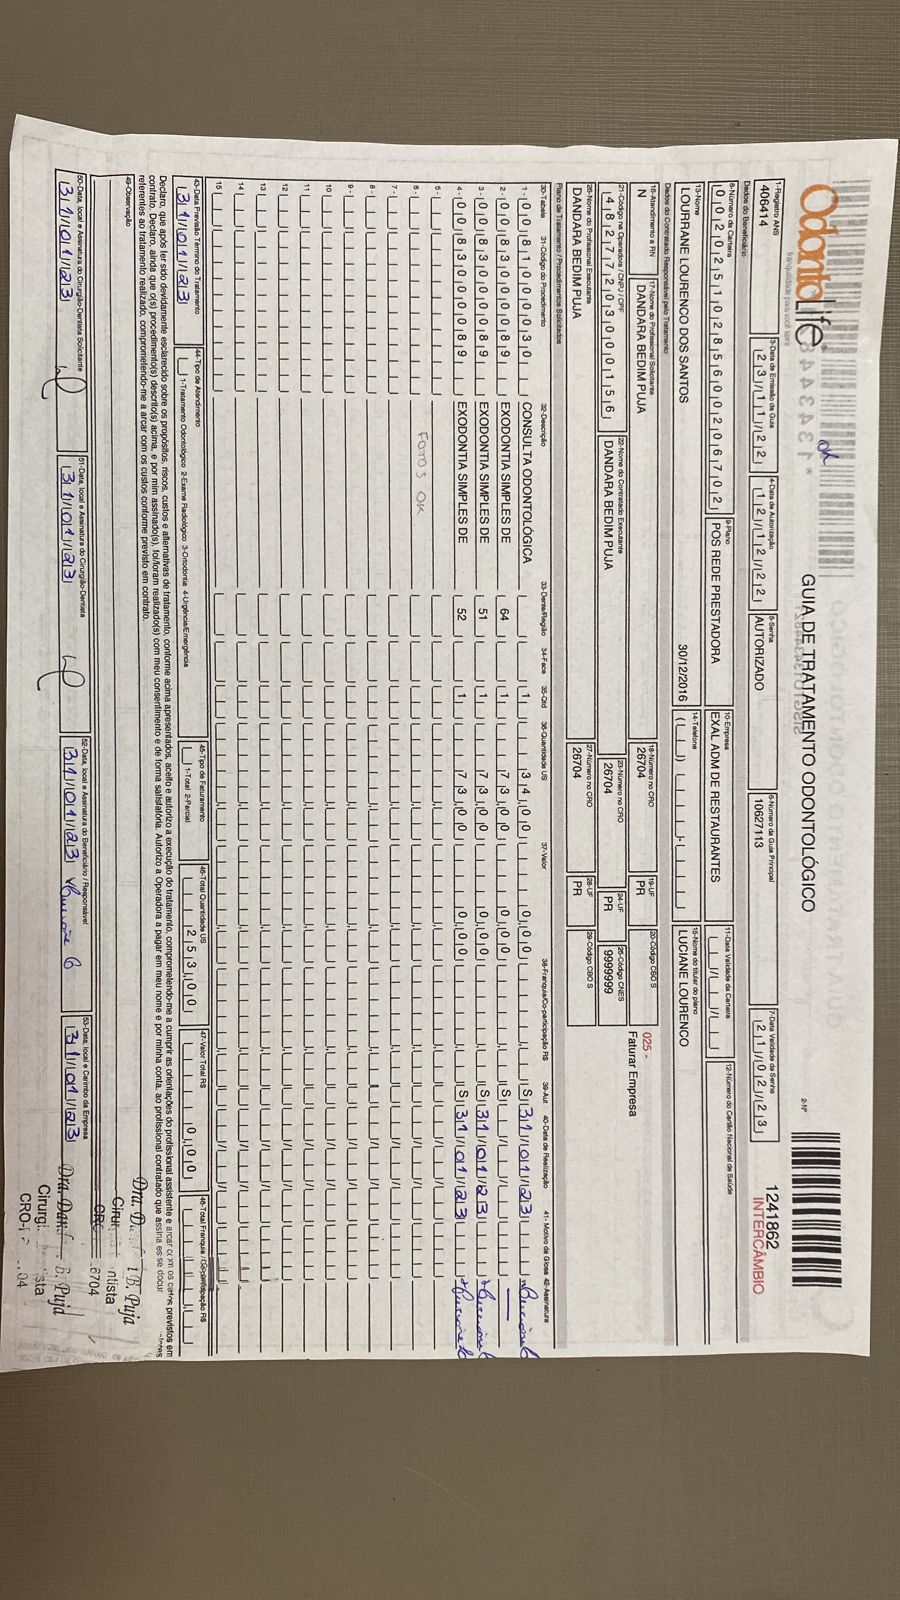 OdontoLife.
tranquilidade para você sorrir
ok
GUIA DE TRATAMENTO ODONTOLÓGICO
2-Nº
1241862
INTERCÂMBIO
1-Registro ANS
406414
3-Data de Emissão da Guia
23/11/22
4-Data de Autorização
12/12/22
5-Senha
AUTORIZADO
6-Número da Guia Principal
10627113
7-Data Validade da Senha
21/02/23
Dados do Beneficiário
8-Número da Carteira
00202510285600206702
9-Plano
POS REDE PRESTADORA
10-Empresa
EXAL ADM DE RESTAURANTES
11-Data Validade da Carteira
12-Número do Cartão Nacional de Saúde
13-Nome
LOURRANE LOURENCO DOS SANTOS
30/12/2016
14-Telefone
15-Nome do titular do plano
LUCIANE LOURENCO
Dados do Contratado Responsável pelo Tratamento
16-Atendimento a RN
N
17-Nome do Profissional Solicitante
DANDARA BEDIM PUJA
18-Número no CRO
26704
19-UF
PR
20-Código CBO S
025 -
Faturar Empresa
21-Código na Operadora / CNPJ / CPF
48277203000156
22-Nome do Contratado Executante
DANDARA BEDIM PUJA
23-Número no CRO
26704
24-UF
PR
25-Código CNES
9999999
26-Nome do Profissional Executante
DANDARA BEDIM PUJA
27-Número no CRO
26704
28-UF
PR
29-Código CBO S
Plano de Tratamento / Procedimentos Solicitados
30-Tabela 31-Código do Procedimento 32-Descrição 33-Dente/Região 34-Face 35-Qtd 36-Quantidade US 37-Valor 38-Franquia/Co-participação R$ 39-Aut 40-Data de Realização 41- Motivo da Glosa 42-Assinatura
1 - 00 81000030 CONSULTA ODONTOLÓGICA 1 34,00 0,00 S 31/01/23
2 - 00 83000089 EXODONTIA SIMPLES DE 64 1 73,00 0,00 S
3 - 00 83000089 EXODONTIA SIMPLES DE 51 1 73,00 0,00 S 31/01/23
4 - 00 83000089 EXODONTIA SIMPLES DE 52 1 73,00 0,00 S 31/01/23
5 -
6 - FOTOS OK
7 -
8 -
9 -
10
11
12
13
14
15
43-Data Previsão Término do Tratamento
31/01/23
44-Tipo de Atendimento
1-Tratamento Odontológico 2-Exame Radiológico 3-Ortodontia 4-Urgência/Emergência
45-Tipo de Faturamento
1-Total 2-Parcial
46-Total Quantidade US
253,00
47-Valor Total R$
0,00
48-Total Franquia / Co-participação R$
Declaro, que após ter sido devidamente esclarecido sobre os propósitos, riscos, custos e alternativas de tratamento, conforme acima apresentados, aceito e autorizo a execução do tratamento, comprometendo-me a cumprir as orientações do profissional assistente e arcar com os custos previstos em
contrato. Declaro, ainda que o(s) procedimento(s) descrito(s) acima, e por mim assinado(s), foi/foram realizado(s) com meu consentimento e de forma satisfatória. Autorizo a Operadora a pagar em meu nome e por minha conta, ao profissional contratado que assina esse docum
referentes ao tratamento realizado, comprometendo-me a arcar com os custos conforme previsto em contrato.
49-Observação
50-Data, local e Assinatura do Cirurgião-Dentista Solicitante
31/01/23
51-Data, local e Assinatura do Cirurgião-Dentista
31/01/23
52-Data, local e Assinatura do Beneficiário / Responsável
31/01/23
53-Data, local e Carimbo da Empresa
31/01/23
B. Puja
ntista
6704
Dra. Dand B. Puja
Cirurgi ista